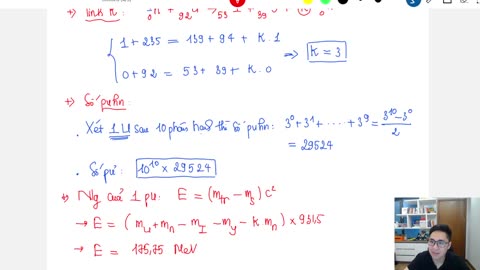 1 + 235 = 139 + 94 + K.1
⇒ K = 3
0 + 92 = 53 + 39 + K.0
Số phản
. Xét 1U sau 10 phân hạch thì số phản: 3⁰+3¹+ ⋯ +3⁹ = (3¹⁰-3⁰)/2
= 29524
. Số pứ: 10¹⁰ × 29524
Ng cuả 1 pứ: E = (mtr - ms)c²
→ E = (mu + mn - mI - my - K.mn) × 931,5
→ E = 175,75 MeV